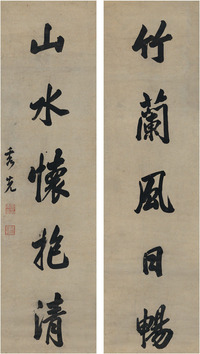 竹蘭風日暢
山水懷抱清
秀先